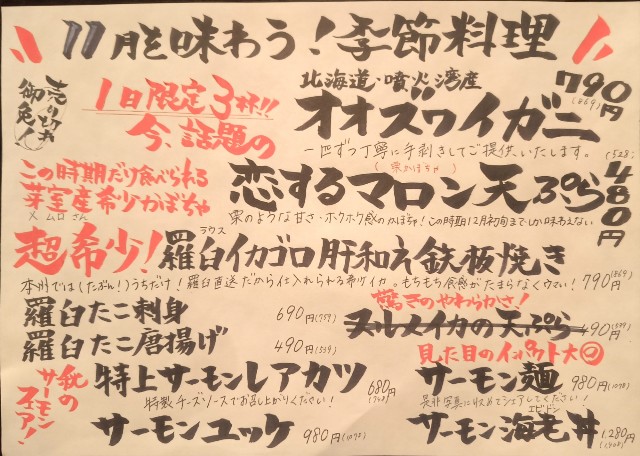 11月を味わう!季節料理
売り切れ御免!
1日限定3杯!!
今、話題の
北海道・噴火湾産
オオズワイガニ
790円
(869)
一匹ずつ丁寧に手剥きしてご提供いたします。
この時期だけ食べられる
芽室産希少かぼちゃ
メムロさん
(栗かぼちゃ)
恋するマロン天ぷら
(528)
480円
栗のような甘さ・ホクホク感のかぼちゃ!この時期12月初旬までしか味わえない
超希少!
ラウス
羅臼イカゴロ肝和え鉄板焼き
本州では(たぶん!)うちだけ!羅臼直送だから仕入れられる希少イカ。もちもち食感がたまらなくウマい!
790円(869)
羅臼たこ刺身
690円(759)
羅臼たこ唐揚げ
490円(539)
驚きのやわらかさ!
スルメイカの天ぷら
490円(539)
秋のサーモンフェア!
特上サーモンレアカツ
680円(748)
特製チーズソースでお召し上がりください!
サーモンユッケ
980円(1078)
見た目のインパクト大◎
サーモン麺
980円(1078)
是非写真に収めてシェアしてください!
エビドン
サーモン海老丼
1.280円(1408)